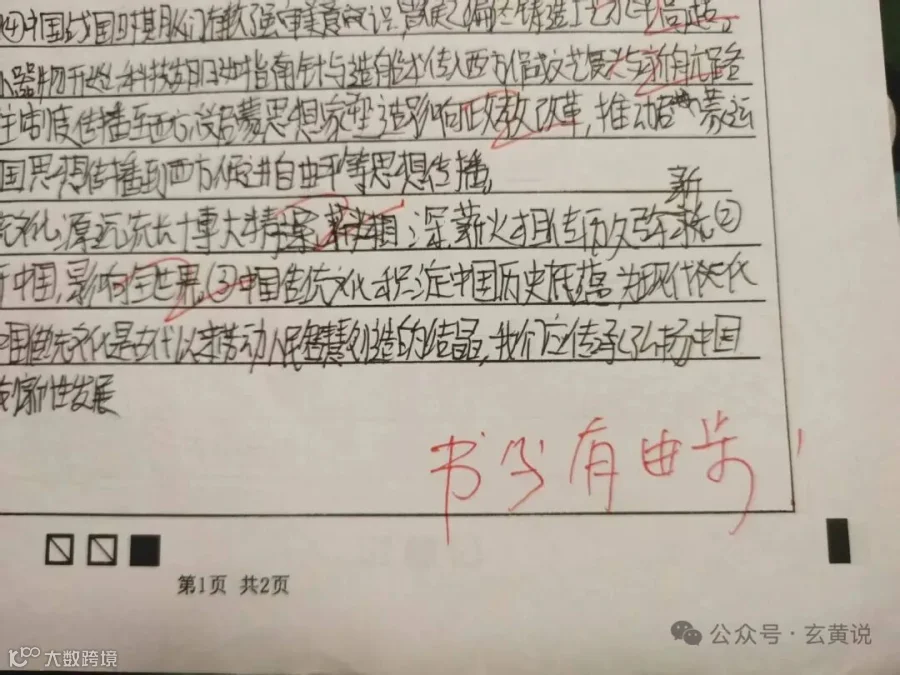 ④中国战国时期人们有较强审美意识,铸造工艺水平高超。
小器物开巡:科技发明进步指南针与造船术传入西方促成文艺复兴与新航路
主制度传播至西方被启蒙思想家塑造影响政教改革,推动启蒙运
国思想传播到西方促进自由平等思想传播。
统文化源远流长博大精深,薪火相传历久弥新②
于中国,影响全世界。③中国传统文化积淀中国历史底蕴为现代
中国传统文化是古代以来劳动人民智慧创造的结晶,我们应传承弘扬中国
创新性发展
书写有进步!
第1页 共2页
公众号·玄黄说
大数跨境